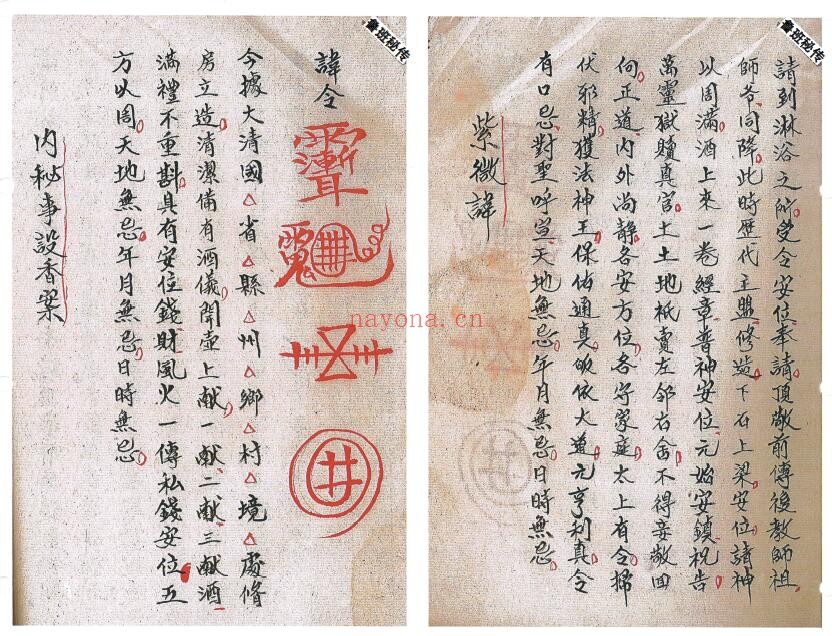 魯班秘传
請到淋浴之所受令安位奉請頂敬前傳後教師祖
師爷同降此時歷代主盟修造下石上梁安位諸神
以周滿酒上來一卷經章普神安位元始安鎮祝告
萬靈獄瀆真官土土地祇賣左邻右舍不得妄敬回
向正道内外尚静各安方位各守家庭太上有令掃
伏邪精獲法神王保佑通真皈依大道元亨利真令
有口忌對聖呼豈天地無忌年月無忌日時無忌
紫微諱
魯班秘传
諱令
今據大清國△省△縣△州△鄉△村△境△處修
房立造清潔俻有酒儀開壺上献一献二献三献酒
滿禮不重斟具有安位錢財風火一傳私錢安位五
方以周天地無忌年月無忌日時無忌
内秘事設香案
nayona.cn